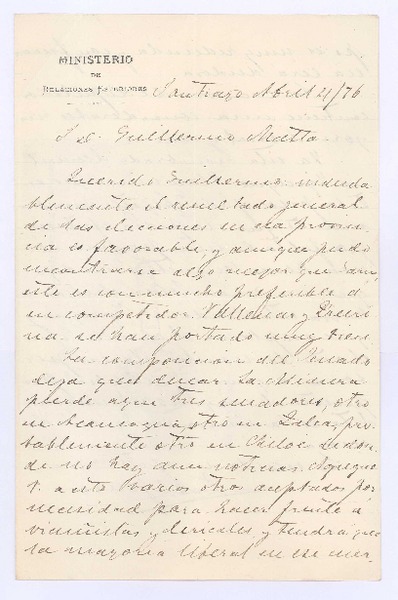 MINISTERIO
DE
RELACIONES EXTERIORES
Santiago Abril 4/76
S. D. Guillermo Matta
Querido Guillermo: induda
blemente el resultado jeneral
de las elecciones en esa provin
cia es favorable, y aunque pudo
encontrarse algo mejor que
este es con mucho preferible a
su competidor. Vallenar y Freiri
na se han portado muy bien.
La composicion del Senado
deja que desear. La
pierde aquí tres senadores, otro
en Aconcagua, otro en Talca, pro
bablemente otro en Chiloé de don
de no hay aun noticias. Agregue
V. a esto varios otros aceptados por
necesidad para hacer frente á
vicuñistas y clericales, y tendrá que
la mayoría liberal en ese